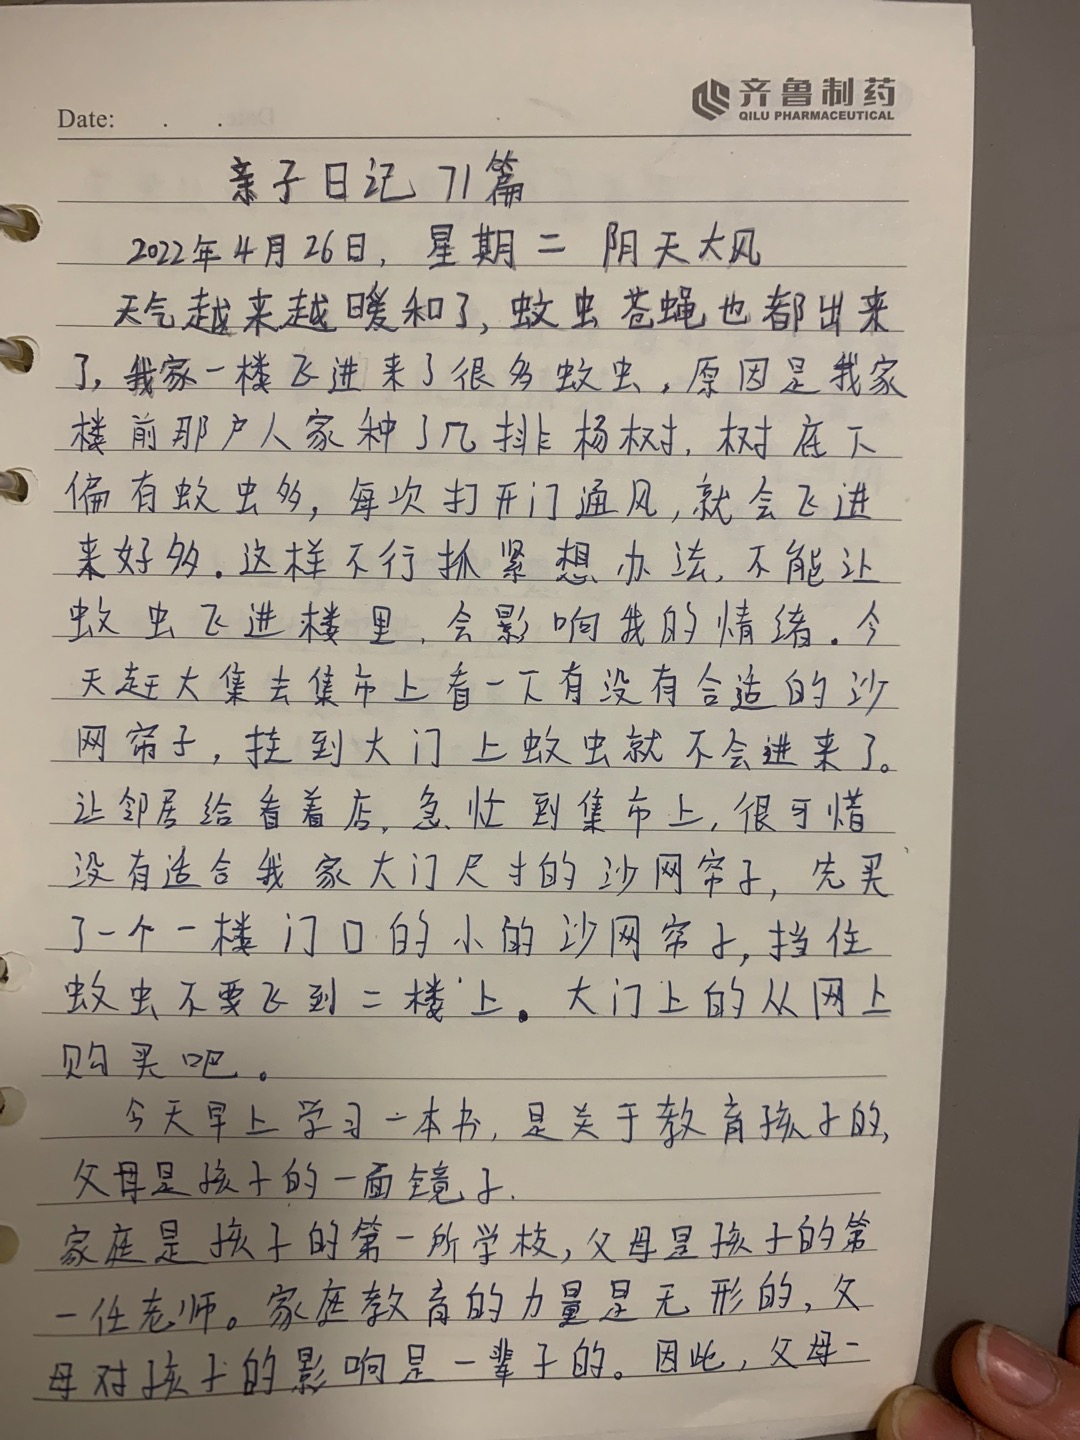 齐鲁制药
QILU PHARMACEUTICAL
Date: . .
亲子日记 71篇
2022年4月26日, 星期二 阴天大风
天气越来越暖和了, 蚊虫苍蝇也都出来
了, 我家一楼飞进来了很多蚊虫, 原因是我家
楼前那户人家种了几排杨树, 树底下
偏有蚊虫多, 每次打开门通风, 就会飞进
来好多. 这样不行抓紧想办法, 不能让
蚊虫飞进楼里, 会影响我的情绪. 今
天赶大集去集市上看一下有没有合适的沙
网帘子, 挂到大门上蚊虫就不会进来了。
让邻居给看着店, 急忙到集市上, 很可惜
没有适合我家大门尺寸的沙网帘子, 先买
了一个一楼门口的小的沙网帘子, 挡住
蚊虫不要飞到二楼上. 大门上的从网上
购买吧。
今天早上学习一本书, 是关于教育孩子的,
父母是孩子的一面镜子.
家庭是孩子的第一所学校, 父母是孩子的第
一任老师。家庭教育的力量是无形的, 父
母对孩子的影响是一辈子的。因此, 父母一